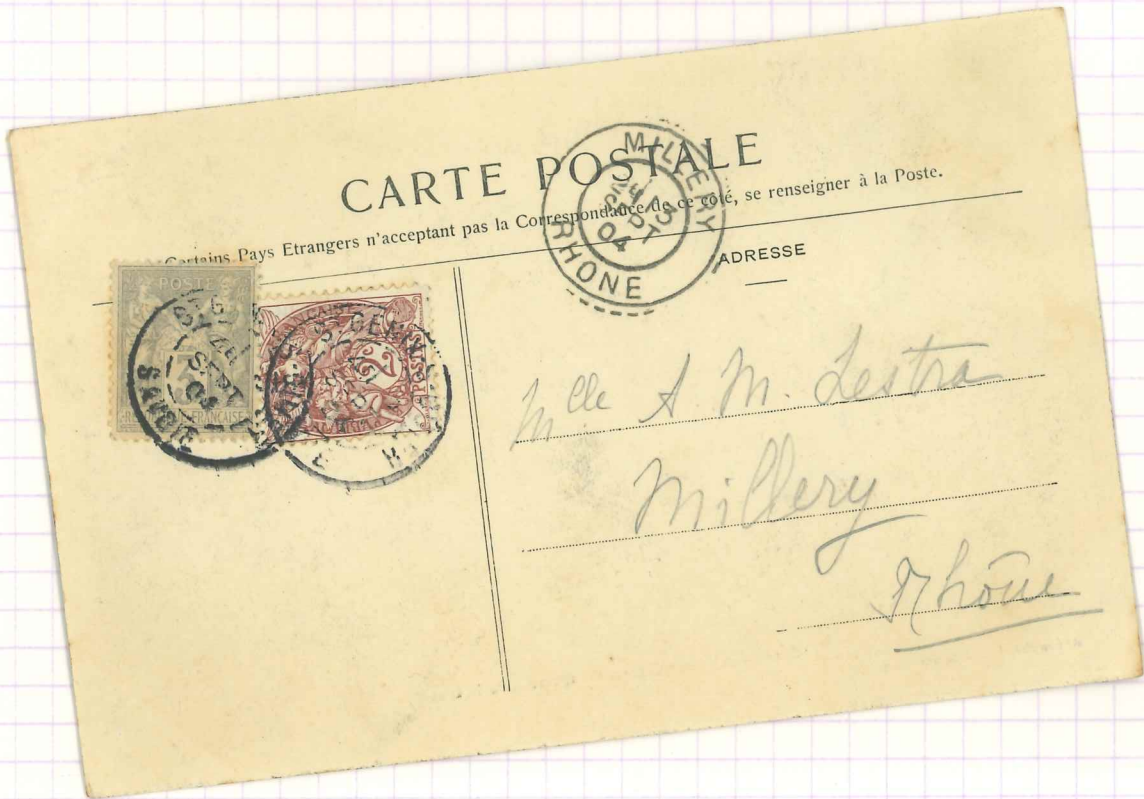 CARTE POSTALE
Certains Pays Etrangers n'acceptent pas la Correspondance de ce côté, se renseigner à la Poste.
MILLERY
RHONE
SEPT
04
ADRESSE
POSTE
FRANÇAISE
2
POSTES
SAVOIE
SEPT
Mlle A M. Lestra
Millery
Rhône